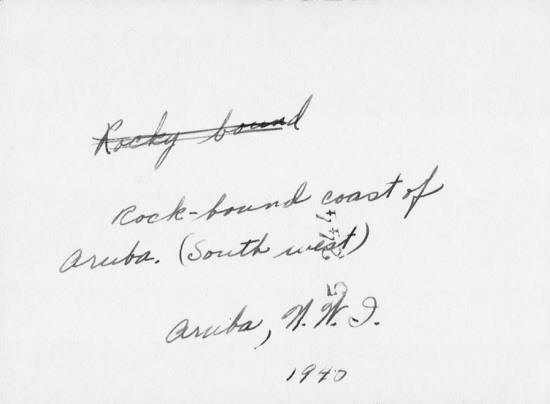 Rocky bound
Rock-bound coast of
Aruba. (South west)
Aruba, N.W.I.
1940